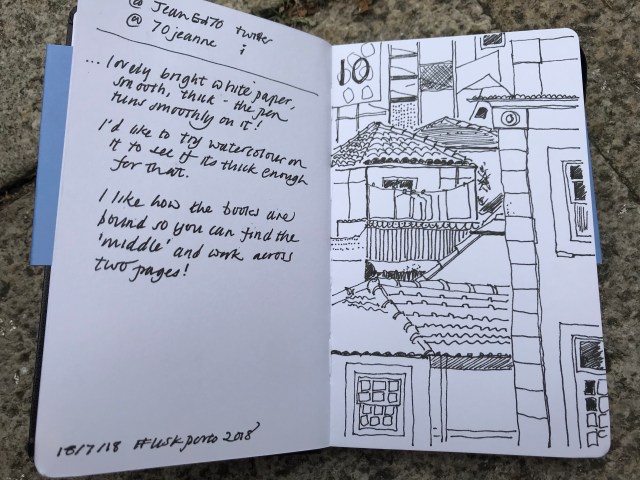 @ JeanEd70 twitter
@ 70jeanne
... lovely bright white paper,
smooth, thick - the pen
runs smoothly on it!
I'd like to try watercolour on
it to see if its thick enough
for that.
I like how the books are
bound so you can find the
'middle' and work across
two pages!
18/7/18 #uskporto2018
10